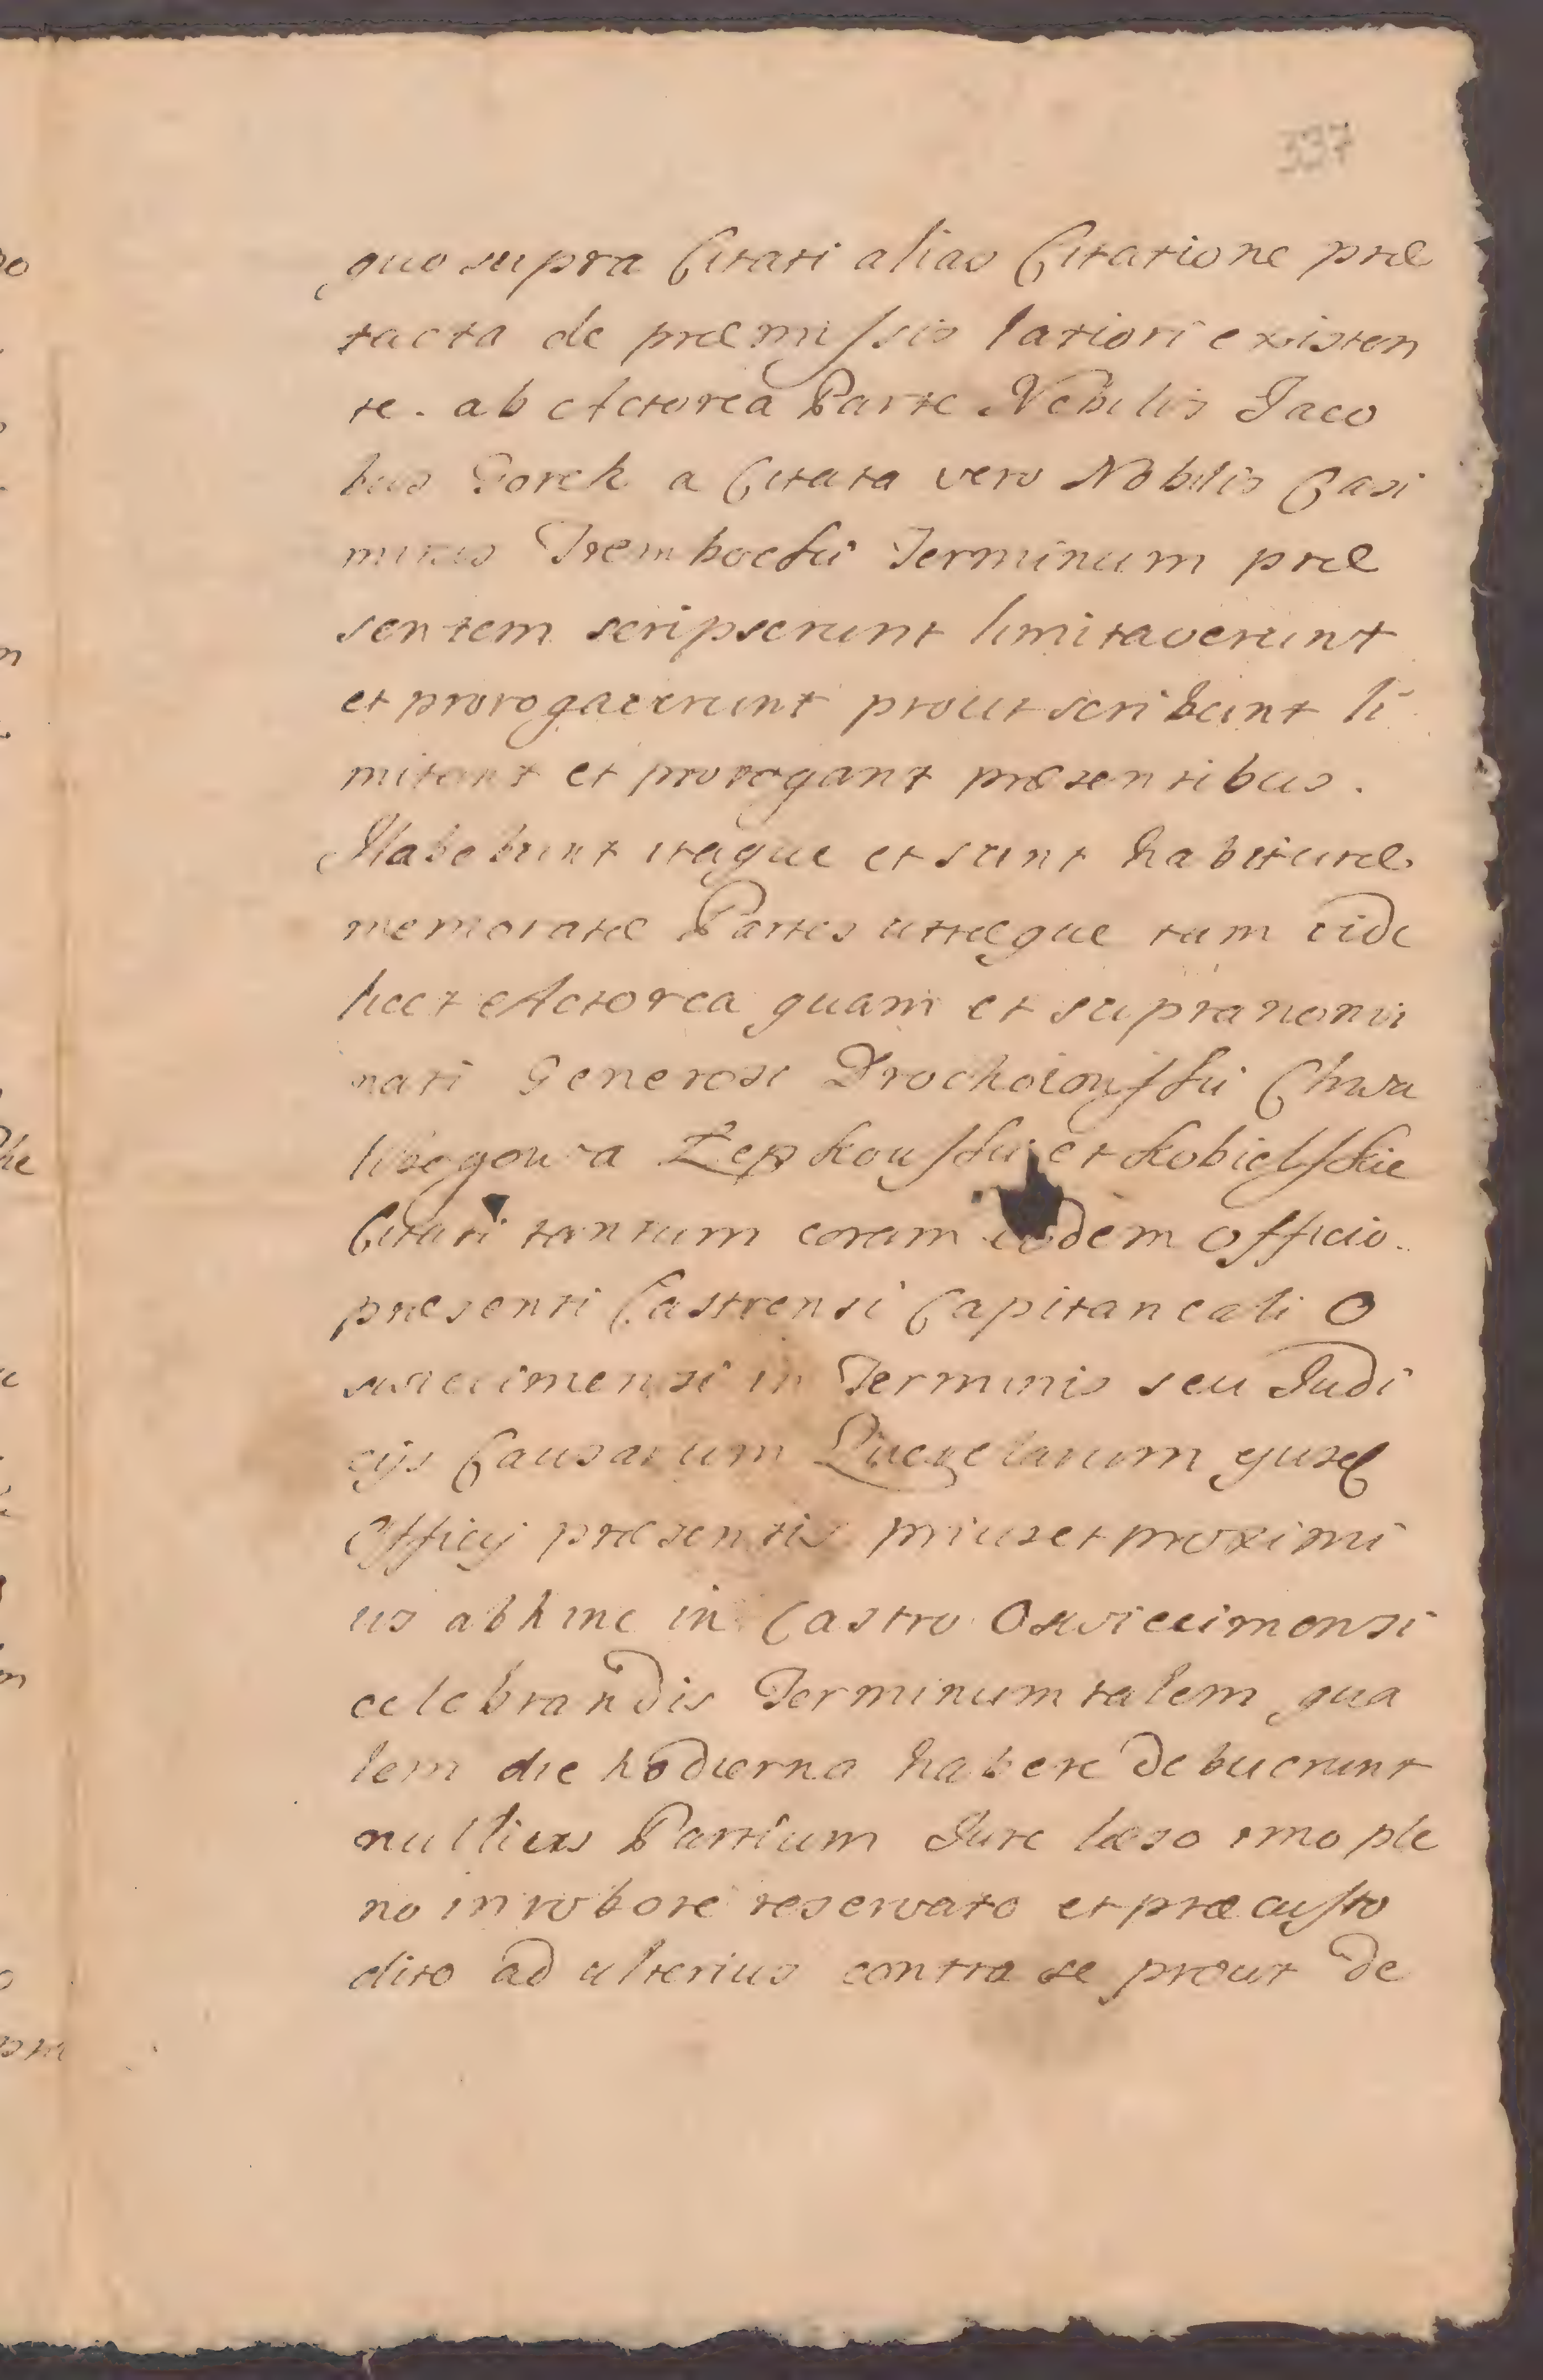 337
quo supra Citati alias Citatione præ
tacta de præmissis latiori existen
te. ab Actorea Parte Nobilis Jaco
bus Gorek a Citata vero Nobilis Casi
mirus Trembecki Terminum præ
sentem scripserunt limitaverunt
et prorogaverunt prout scribunt li
mitant et prorogant præsentibus.
Habebunt itaque et sunt habituræ
memoratæ Partes utræque tam vide
licet Actorea quam et supranomi
nati Generosi Drochoiowski Chwa
libogowa Zepkowski et Kobielskie
Citati tantum coram eodem Officio
præsenti Castrensi Capitaneali O
swiecimensi in Terminis seu Judi
cijs Causarum Querelarum ejusq
Officij præsentis prius et proximi
us abhinc in Castro Oswiecimensi
celebrandis Terminum talem qua
lem die hodierna habere debuerunt
nullius Partium Jure læso imo ple
no in robore reservato et præcusto
dito ad ulterius contra se prout de